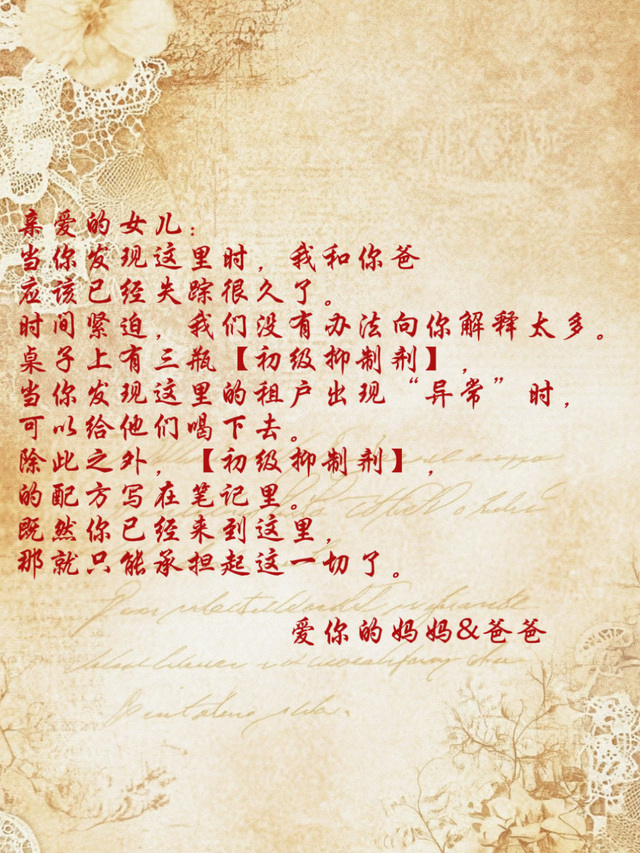 亲爱的女儿：
当你发现这里时，我和你爸
应该已经失踪很久了。
时间紧迫，我们没有办法向你解释太多。
桌子上有三瓶【初级抑制剂】，
当你发现这里的租户出现“异常”时，
可以给他们喝下去。
除此之外，【初级抑制剂】，
的配方写在笔记里。
既然你已经来到这里，
那就只能承担起这一切了。
爱你的妈妈&爸爸